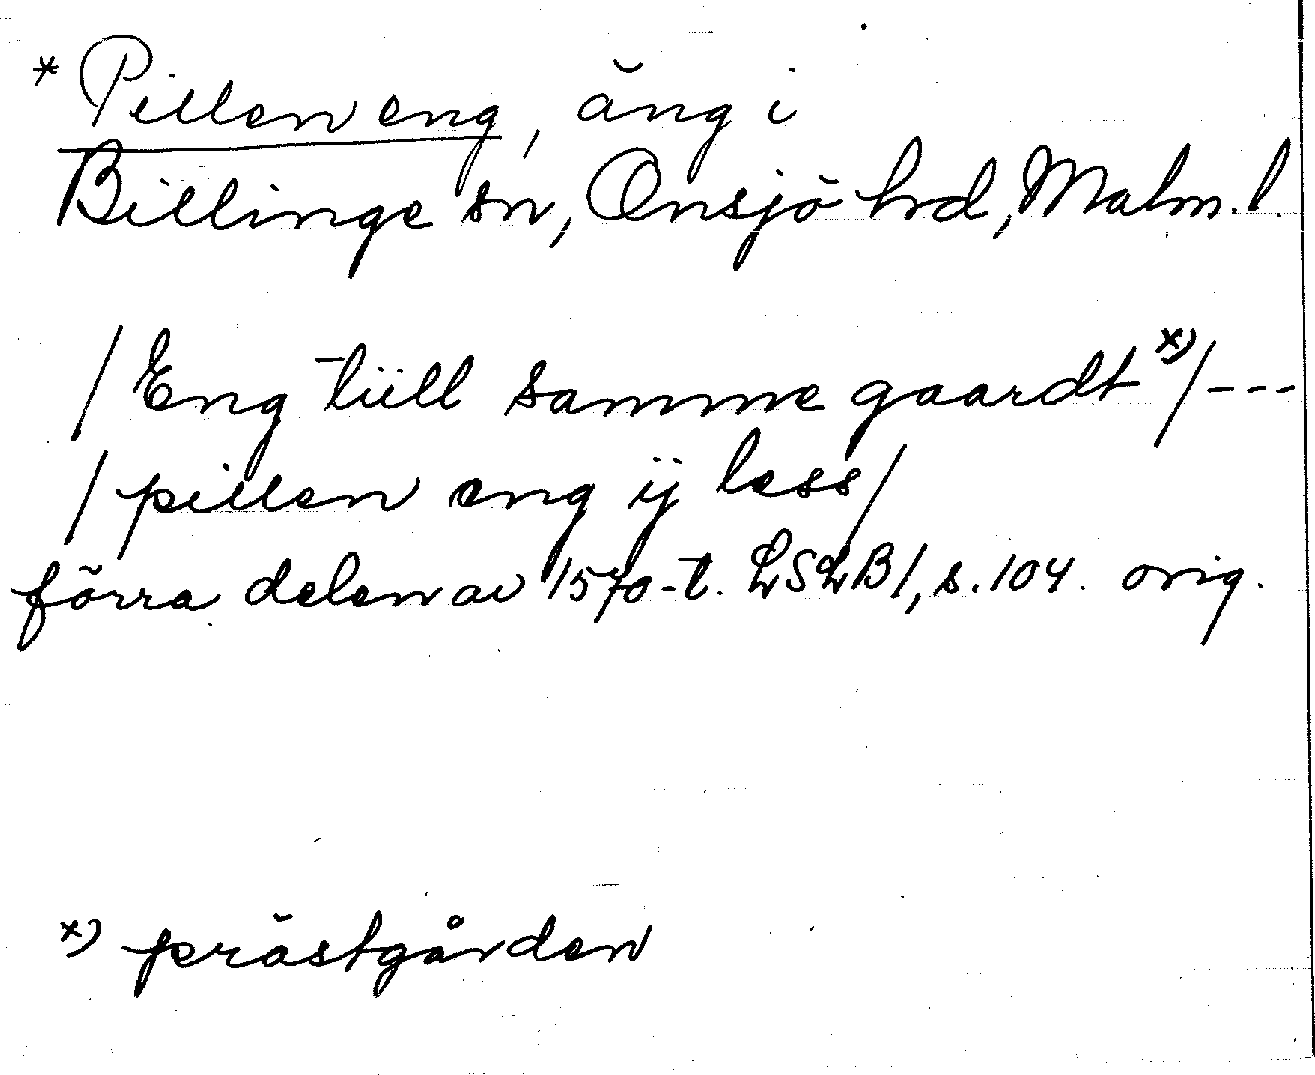 * Pillen eng, äng i
Billinge sn, Onsjö hrd, Malm. l.
/Eng tiill samme gaardt x)/---
/pillen eng ij less/
förra delen av 1570-t. LSLB1, s. 104. orig.
x) prästgården